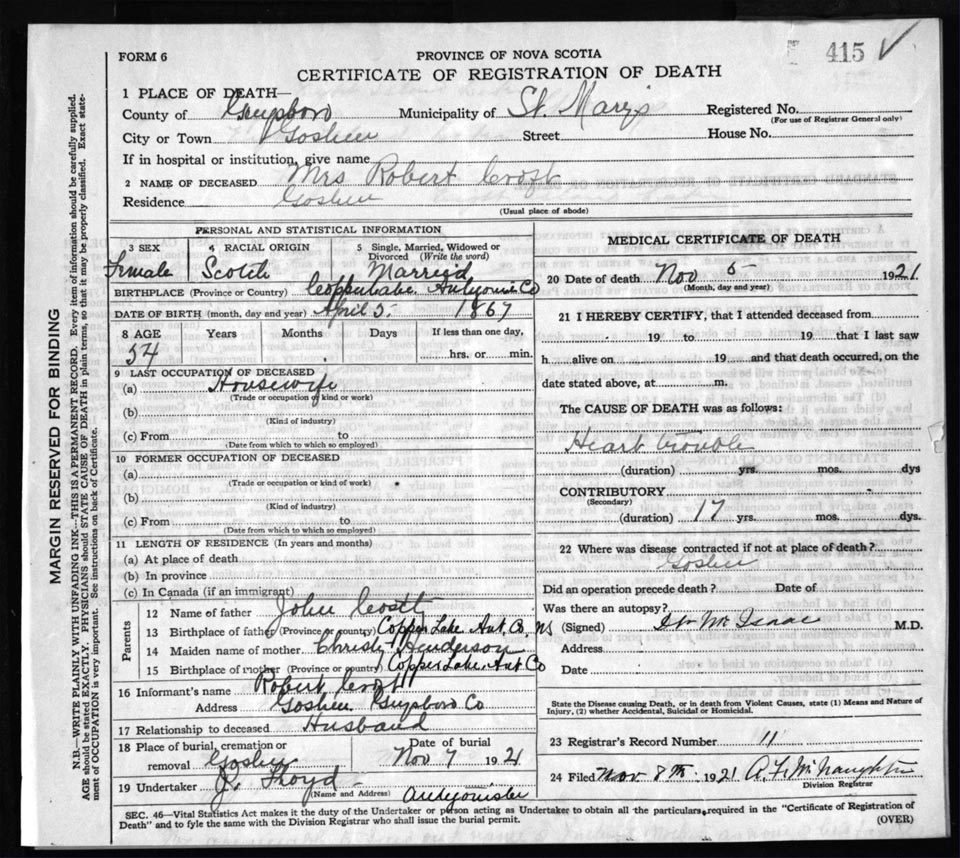 415 ✓
FORM 6
PROVINCE OF NOVA SCOTIA
CERTIFICATE OF REGISTRATION OF DEATH
1 PLACE OF DEATH—
County of Guysboro Municipality of St. Mary's Registered No.
(For use of Registrar General only)
City or Town Goshen Street House No.
If in hospital or institution, give name
2 NAME OF DECEASED Mrs Robert Croft
Residence Goshen
(Usual place of abode)
PERSONAL AND STATISTICAL INFORMATION
3 SEX 4 RACIAL ORIGIN 5 Single, Married, Widowed or Divorced (Write the word)
Female Scotch Married
BIRTHPLACE (Province or Country) Co
DATE OF BIRTH (month, day and year) April 5. 1867
8 AGE Years Months Days If less than one day,
54 hrs. or min.
9 LAST OCCUPATION OF DECEASED
(a) Housewife
(Trade or occupation of kind or work)
(b)
(Kind of industry)
(c) From to
(Date from which to which so employed)
10 FORMER OCCUPATION OF DECEASED
(a)
(Trade or occupation or kind of work)
(b)
(Kind of industry)
(c) From to
(Date from which to which so employed)
11 LENGTH OF RESIDENCE (In years and months)
(a) At place of death
(b) In province
(c) In Canada (if an immigrant)
Parents
12 Name of father John
13 Birthplace of father (Province or country) Copper Lake. Ant. Co. NS
14 Maiden name of mother Christy Henderson
15 Birthplace of mother (Province or country) Copper Lake. Ant Co
16 Informant's name Robert Croft
Address Goshen Guysboro Co
17 Relationship to deceased Husband
18 Place of burial, cremation or removal Goshen Date of burial Nov 7 1921
19 Undertaker J. Floyd
(Name and Address)
MEDICAL CERTIFICATE OF DEATH
20 Date of death Nov 5 1921
(Month, day and year)
21 I HEREBY CERTIFY, that I attended deceased from
19 to 19 that I last saw
h alive on 19 and that death occurred, on the
date stated above, at m.
The CAUSE OF DEATH was as follows:
Heart trouble
(duration) yrs. mos. dys
CONTRIBUTORY
(Secondary)
(duration) 17 yrs. mos. dys.
22 Where was disease contracted if not at place of death?
Goshen
Did an operation precede death? Date of
Was there an autopsy?
(Signed) Mc Isaac M.D.
Address
Date
State the Disease causing Death, or in death from Violent Causes, state (1) Means and Nature of
Injury, (2) whether Accidental, Suicidal or Homicidal.
23 Registrar's Record Number 11
24 Filed Nov 8th 1921 A. F. McNaughton
Division Registrar
SEC. 46—Vital Statistics Act makes it the duty of the Undertaker or person acting as Undertaker to obtain all the particulars required in the "Certificate of Registration of
Death" and to fyle the same with the Division Registrar who shall issue the burial permit.
(OVER)
MARGIN RESERVED FOR BINDING
N.B.—WRITE PLAINLY WITH UNFADING INK—THIS IS A PERMANENT RECORD. Every item of information should be carefully supplied.
AGE should be stated EXACTLY, PHYSICIANS should STATE CAUSE OF DEATH in plain terms, so that it may be properly classified. Exact state-
ment of OCCUPATION is very important. See instructions on back of Certificate.